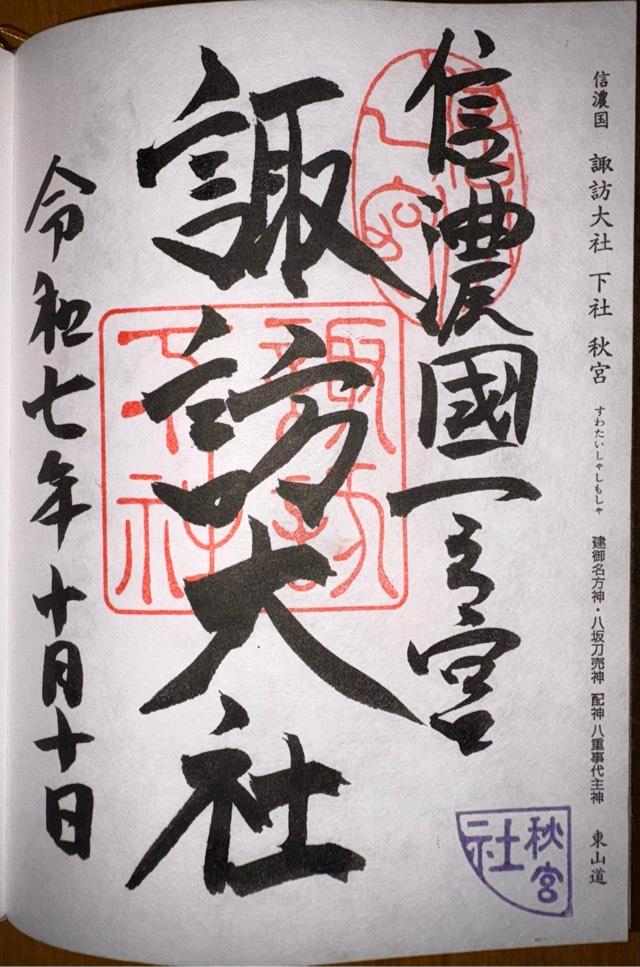 信濃国 諏訪大社 下社 秋宮 すわたいしゃしもしゃ 建御名方神・八坂刀売神 配神 八重事代主神 東山道
信濃國一之宮
諏訪大社
令和七年十月十日
諏訪
下社
秋宮
社